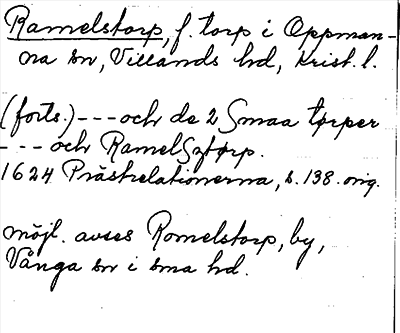 Ramelstorp, f. torp i Oppman-
na sn, Villands hd, Krist. l.
(forts.) --- och de 2 Smaa tørper
--- och RamelSztørp.
1624 Prästrelationerna, s. 138. orig.
möjl. avses Romelstorp, by,
Vånga sn i sma hd.